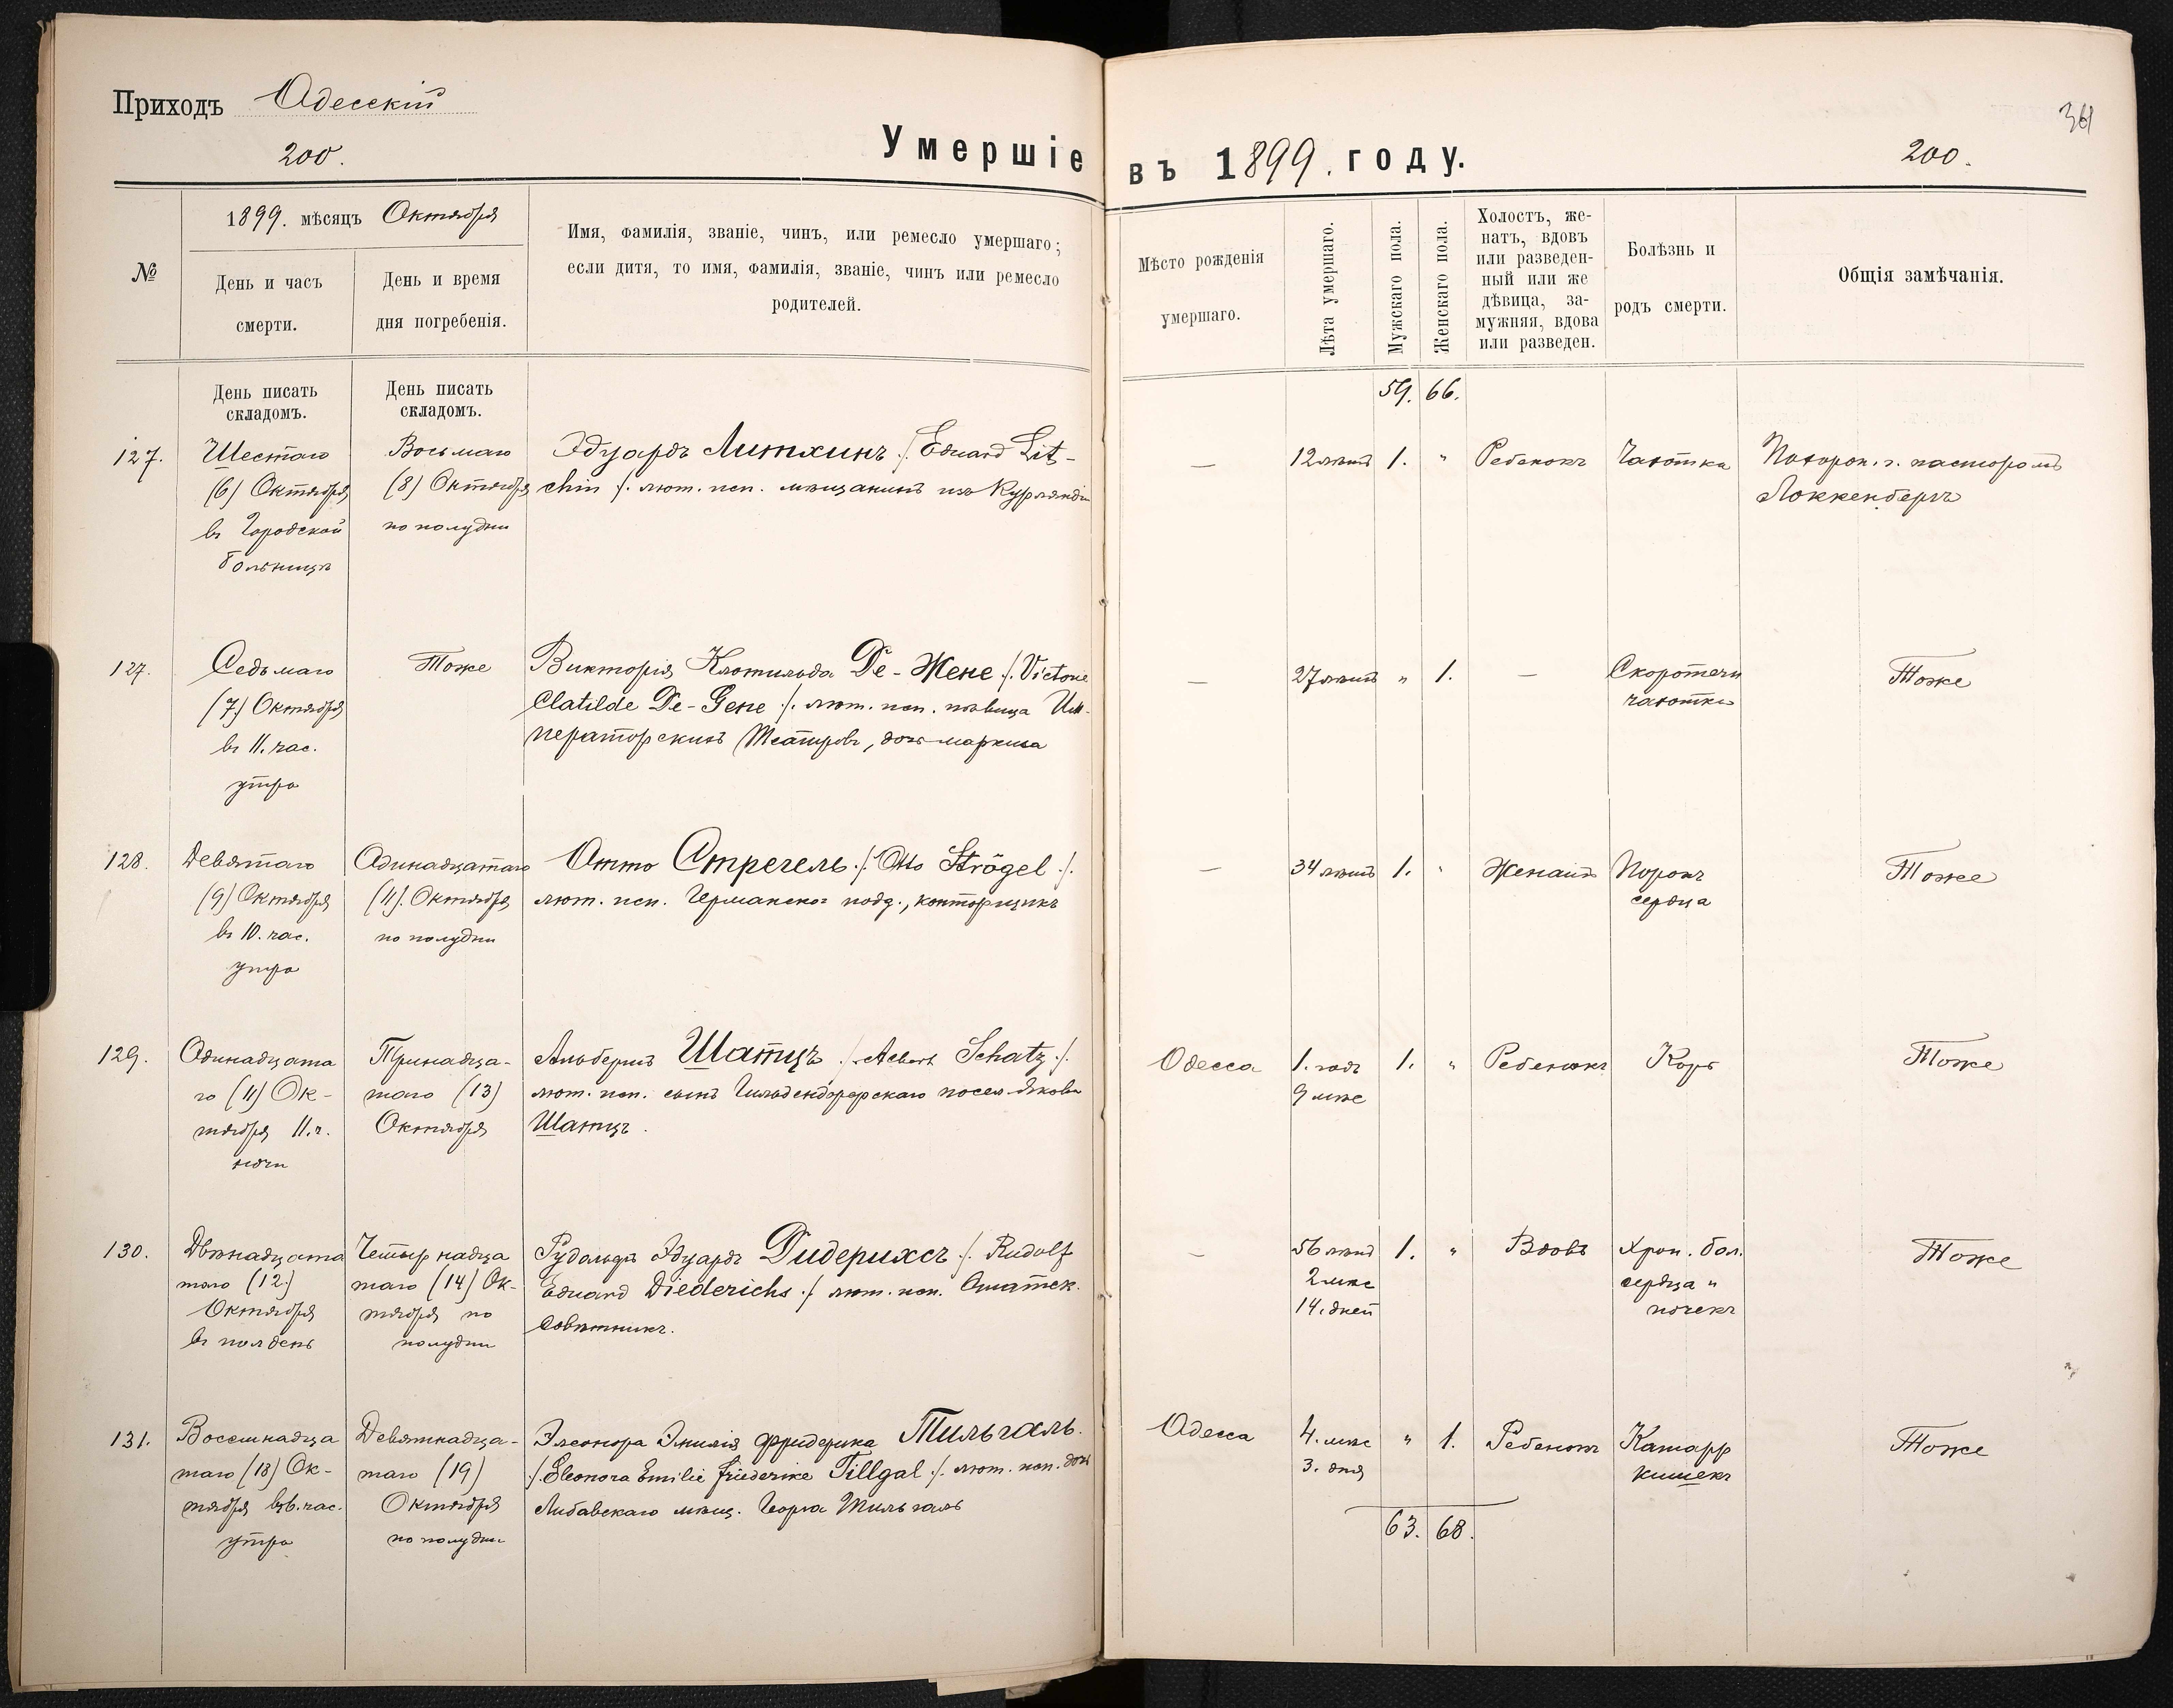 Приходъ Одесскій
200.
Умершіе
№
1899. мѣсяцъ Октября
День и часъ
смерти.
День и время
дня погребенія.
Имя, фамилія, званіе, чинъ, или ремесло умершаго;
если дитя, то имя, фамилія, званіе, чинъ или ремесло
родителей.
День писать
складомъ.
День писать
складомъ.
127.
Шестаго
(6) Октября
въ Городской
больницѣ
Восьмаго
(8) Октября
по полудни
Эдуардъ Литхинъ /. Eduard Lit-
chin /. лют. исп. мѣщанинъ изъ Курляндіи
127.
Седьмаго
(7) Октября
въ 11. час.
утра
Тоже
Викторія Клотильда Де-Жене /. Victorie
Clatilde De-Gene /. лют. исп. пѣвица Им-
ператорскихъ Театровъ, дочь маркиза
128.
Девятаго
(9) Октября
въ 10. час.
утра
Одинадцатаго
(11). Октября
по полудни
Отто Стрегель /. Otto Strögel /.
лют. исп. Германско⸗ подд., конторщикъ
129.
Одинадцата
го (11) Ок-
тября 11. ч.
ночи
Тринадца-
таго (13)
Октября
Альбертъ Шатцъ /. Albert Schatz /.
лют. исп. сынъ Гильдендорфскаго посел. Якова
Шатцъ.
130.
Двѣнадцата
таго (12)
Октября
въ полдень
Четырнадца
таго (14) Ок-
тября по
полудни
Рудольфъ Эдуардъ Дидерихсъ /. Rudolf
Eduard Diederichs /. лют. исп. Статск.
Совѣтникъ.
131.
Восемнадца
таго (18) Ок-
тября въ 6. час.
утра
Девятнадца-
таго (19)
Октября
по полудни
Элеонора Эмилія Фридерика Тильгаль.
/. Eleonora Emilie Friederike Tillgal /. лют. исп. дочь
Либавскаго мѣщ. Георга Тильгаль
361
въ 1899. году.
200.
Мѣсто рожденія
умершаго.
Лѣта умершаго.
Мужскаго пола.
Женскаго пола.
Холостъ, же-
натъ, вдовъ
или разведен-
ный или же
дѣвица, за-
мужняя, вдова
или разведен.
Болѣзнь и
родъ смерти.
Общія замѣчанія.
59. 66.
— 12 лѣтъ 1. " Ребенокъ Чахотка Похорон. г. пасторомъ
Локкенбергъ
— 27 лѣтъ " 1. — Скоротечн
чахотка
Тоже
— 34 лѣтъ 1. " Женатъ Порокъ
сердца
Тоже
Одесса 1. годъ 1. " Ребенокъ Корь Тоже
9 мѣс
— 56 лѣтъ 1. " Вдовъ Хрон. бол. Тоже
2 мѣс сердца и
14. дней почекъ
Одесса 4. мѣс " 1. Ребенокъ Катарр Тоже
3. дня кишекъ
63. 68.